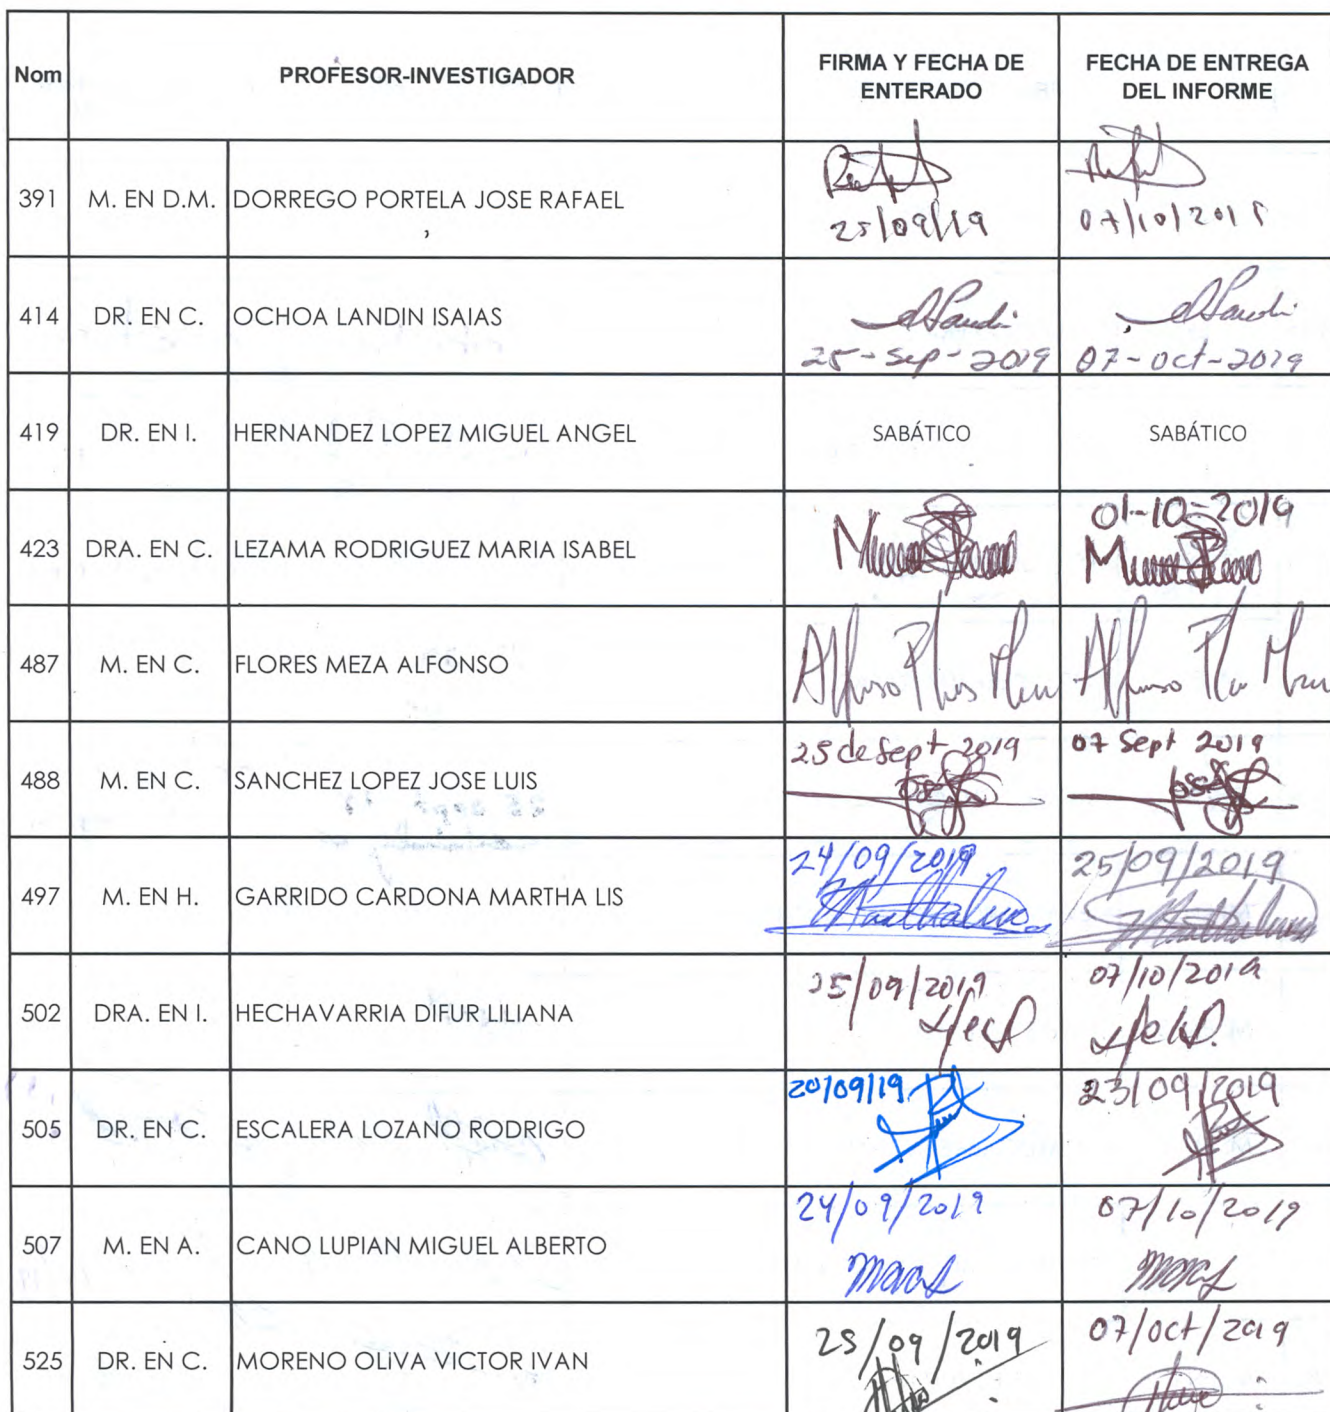 Nom PROFESOR-INVESTIGADOR FIRMA Y FECHA DE ENTERADO FECHA DE ENTREGA DEL INFORME
391 M. EN D.M. DORREGO PORTELA JOSE RAFAEL 25/09/19 07/10/2019
414 DR. EN C. OCHOA LANDIN ISAIAS 25-Sep-2019 07-oct-2019
419 DR. EN I. HERNANDEZ LOPEZ MIGUEL ANGEL SABÁTICO SABÁTICO
423 DRA. EN C. LEZAMA RODRIGUEZ MARIA ISABEL 01-10-2019
487 M. EN C. FLORES MEZA ALFONSO
488 M. EN C. SANCHEZ LOPEZ JOSE LUIS 25 de Sept 2019 07 Sept 2019
497 M. EN H. GARRIDO CARDONA MARTHA LIS 24/09/2019 25/09/2019
502 DRA. EN I. HECHAVARRIA DIFUR LILIANA 25/09/2019 07/10/2019
505 DR. EN C. ESCALERA LOZANO RODRIGO 20/09/19 23/09/2019
507 M. EN A. CANO LUPIAN MIGUEL ALBERTO 24/09/2019 07/10/2019
525 DR. EN C. MORENO OLIVA VICTOR IVAN 25/09/2019 07/oct/2019